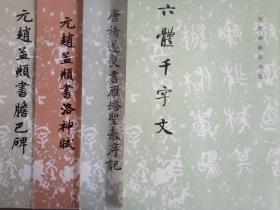 元趙孟頫書膽巴碑
元趙孟頫書洛神賦
唐褚遂良書雁塔聖教序記
六體千字文